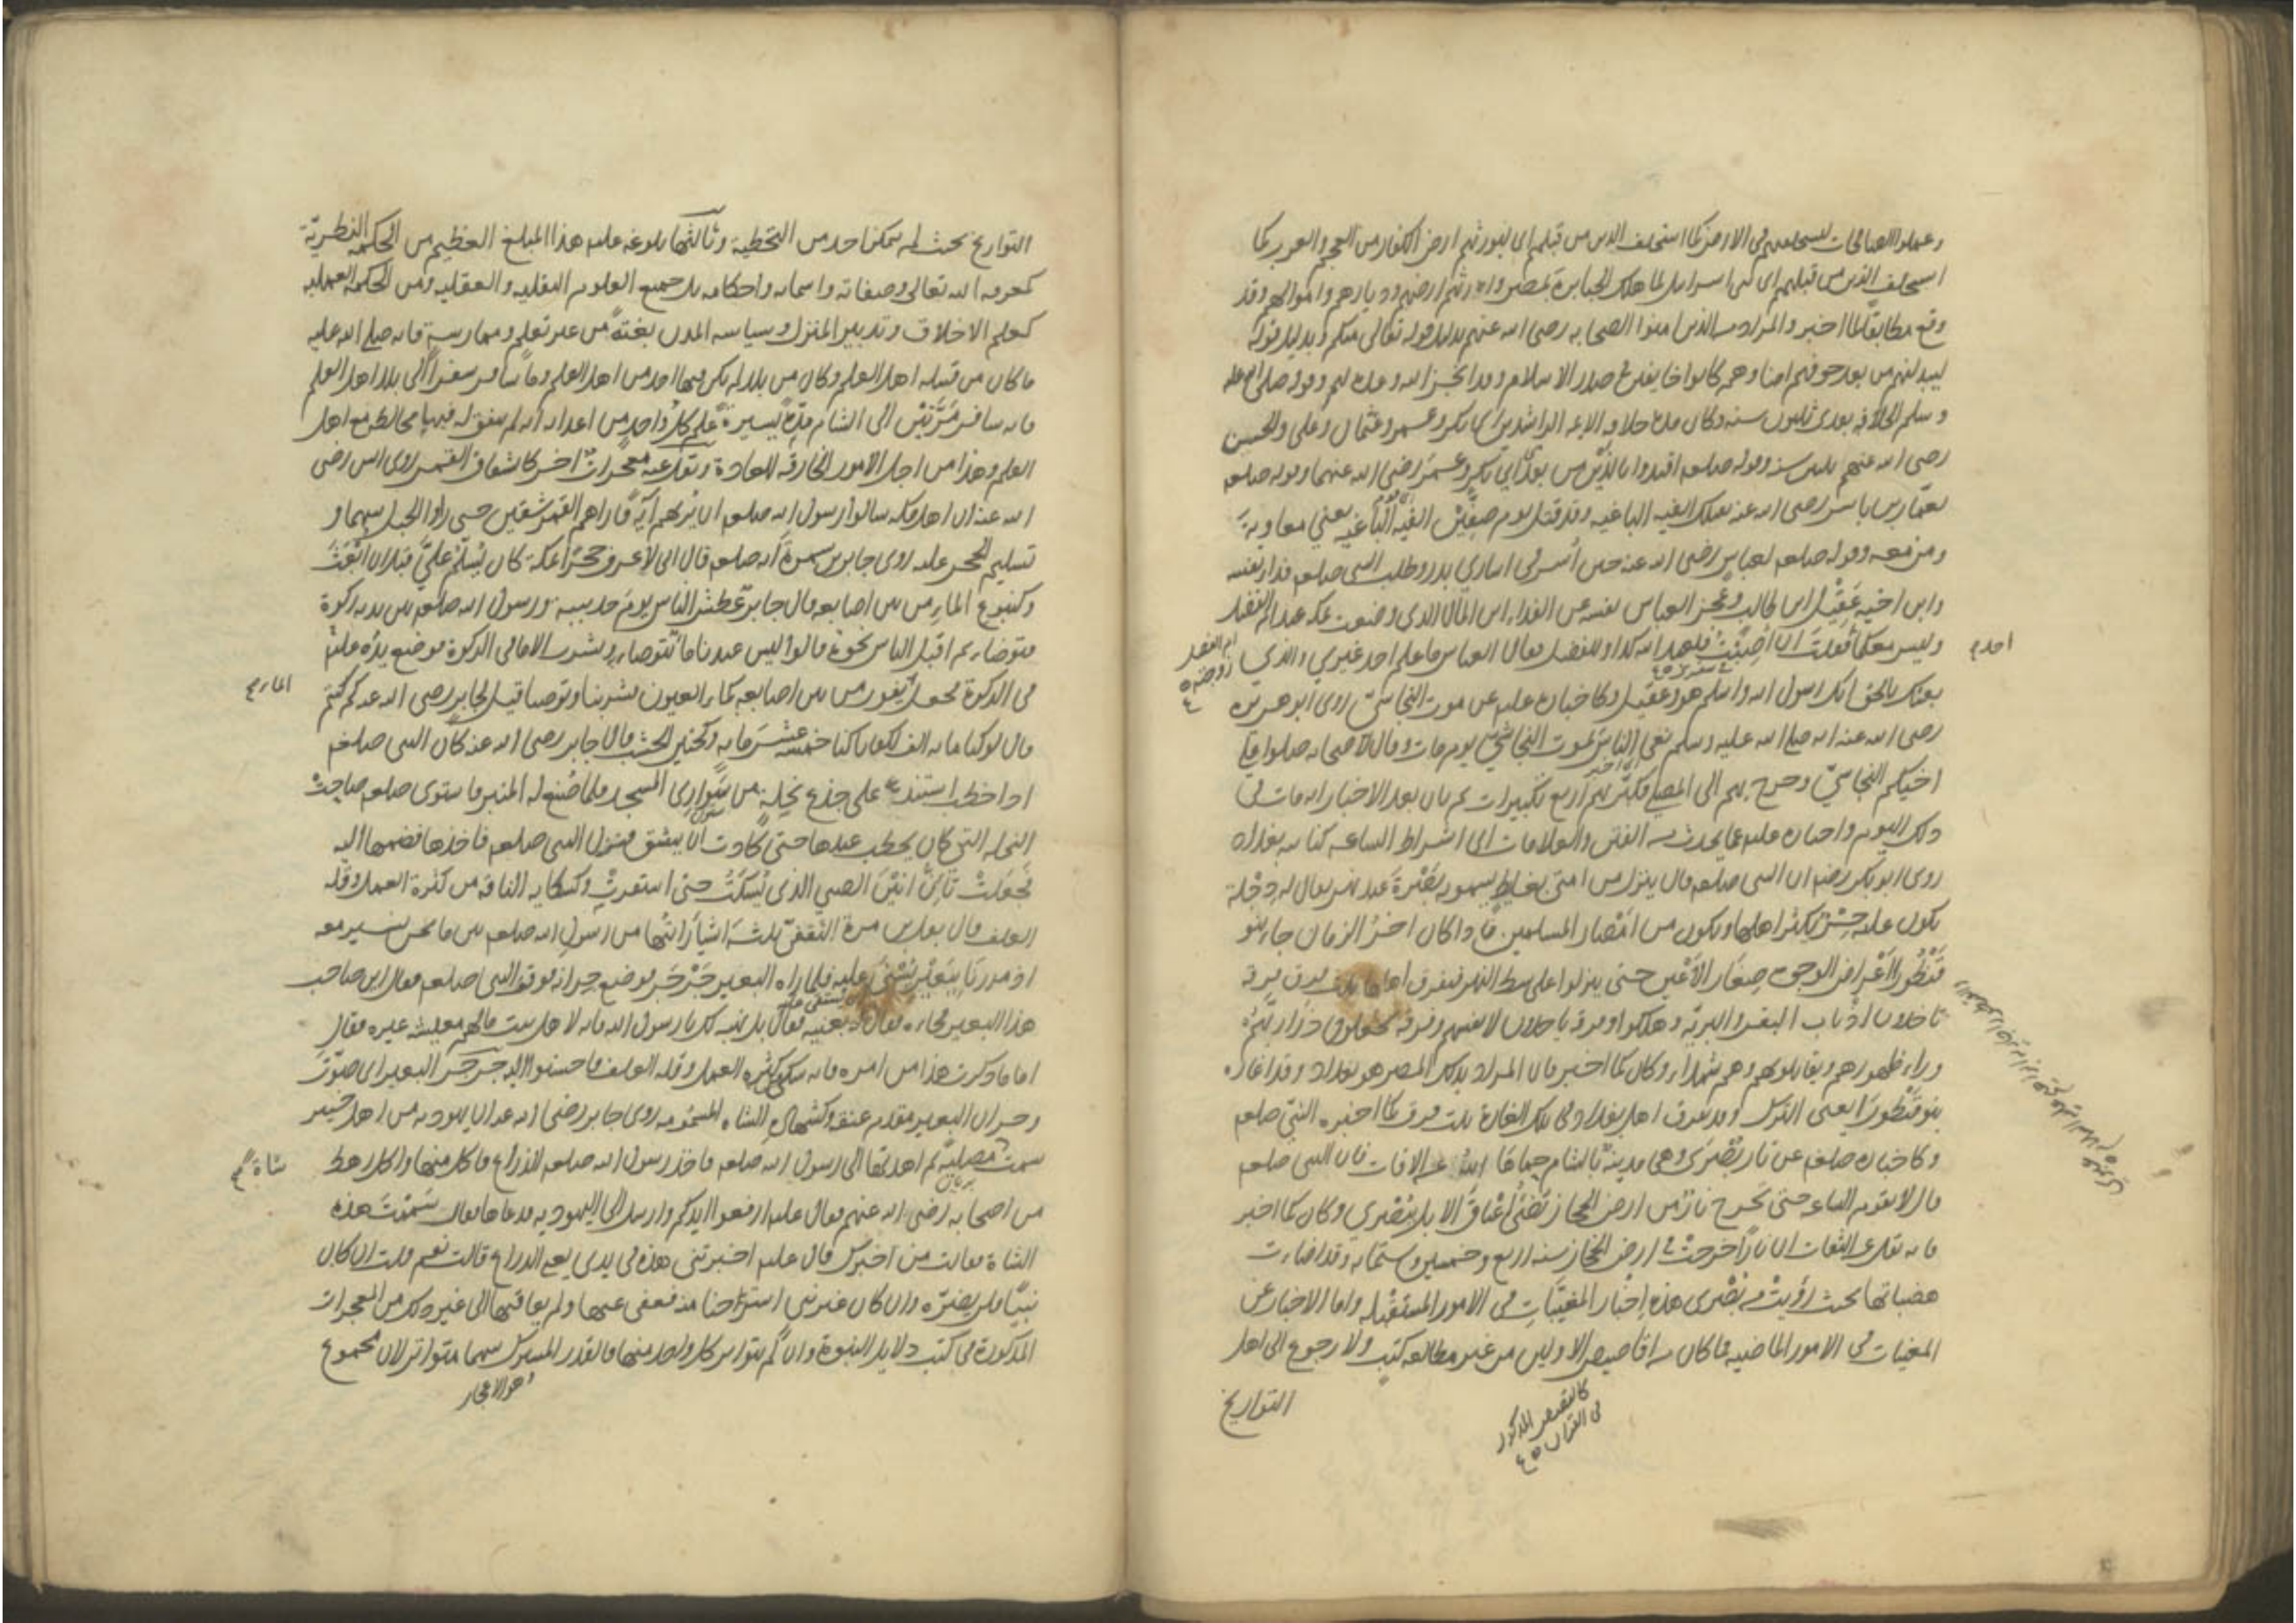 وعملوا الصالحات ليستخلفنهم في الارض كما استخلف الذين من قبلهم اي ليورثنهم ارض الكفار من العجم والعرب كما
استخلف الذين من قبلهم اي بني اسرائيل لما هلك الجبابرة بمصر واورثهم ارضهم وديارهم واموالهم وقد
وقع مطابقا لما اخبر والمراد بالذين امنوا الصحابه رضي الله عنهم بدليل قوله تعالى منكم وبدليل قوله
ليبدلنهم من بعد خوفهم امنا وهم كانوا خايفين في صدر الاسلام وقد انجز الله وعده لهم وقوله صلى الله عليه
وسلم الخلافة بعدي ثلثون سنه وكان مدة خلافه الايمه الراشدين ابي بكر وعمر وعثمان وعلي والحسن
رضي الله عنهم ثلثين سنه وقوله صلعم اقتدوا بالذين من بعدي ابي بكر وعمر رضي الله عنهما وقوله صلعم
لعمار بن ياسر رضي الله عنه تقتلك الفيه الباغيه وقد قتل يوم صفين الفيه الباغيه يعني معاوية
ومن معه وقوله صلعم لعباس رضي الله عنه حين أسر في اساري بدر وطلب النبي صلعم فداء نفسه
وابن اخيه عقيل بن ابي طالب وعجز العباس نفسه عن الفداء اين المال الذي وضعت بمكه عند ام الفضل
وليس معكما فقلت ان اصبت فلعبد الله كذا وللفضل فقال العباس ما علم احد غيري والذي
احد م
ام الفضل زوجته
بعثك بالحق انك رسول الله واسلم هو وعقيل وكاخباره عليه عن موت النجاشي روى ابو هريره
رضي الله عنه انه صلى الله عليه وسلم نعى الناس لموت النجاشي يوم مات وقال لاصحابه صلوا على
اخيكم النجاشي وخرج بهم الى المصلى فكبر بهم اربع تكبيرات ثم بان بعد الاخبار انه مات في
ذلك اليوم واخباره عليه عما يحدث من الفتن والعلامات اي اشراط الساعه كبنايه بغداد
روى ابو بكر رضه ان النبي صلعم قال ينزل ناس من امتي بغايط يسمونه بصرة عند نهر يقال له دجلة
يكون عليه جسر يكثر اهلها ويكون من امصار المسلمين فاذا كان اخر الزمان جاء بنو
قنطورا اعراض الوجوه صغار الاعين حتى ينزلوا على شط النهر فيتفرق اهلها ثلث فرق فرقه
ياخذون اذناب البقر والبرية وهلكوا وفرقة ياخذون لانفسهم وفرقه يجعلون ذراريهم
وراء ظهورهم ويقاتلونهم وهم شهداء وكان كما اخبر فان المراد بذلك المصر هو بغداد وقد اغار
بنو قنطورا يعني الترك وقد تفرق اهل بغداد في تلك الغارة ثلث فرق كما اخبره النبي صلعم
وكاخباره صلعم عن نار بصرى وهي مدينة بالشام حماها الله عن الافات فان النبي صلعم
قال لا تقوم الساعه حتى تخرج نار من ارض الحجاز تضئ اعناق الابل ببصرى وكان كما اخبر
فانه نقل عن الثقات ان نارا خرجت في ارض الحجاز سنه اربع وخمسين وستمايه وقد اضاءت
هضباتها بحيث رؤيت من بصرى هذه اخبار المغيبات في الامور المستقبله واما الاخبار عن
المغيبات في الامور الماضيه فما كان من اقاصيص الاولين من غير مطالعه كتب ولا رجوع الى اهل
كالقصص المذكور
في القران
التواريخ
التواريخ بحيث لم يمكن احد من التخطية وثالثها بلوغه عليه هذا المبلغ العظيم من الحكمة النظرية
كمعرفه الله تعالى وصفاته واسمائه واحكامه بل جميع العلوم النقليه والعقليه ومن الحكمة العمليه
كعلم الاخلاق وتدبير المنزل وسياسه المدن بغتة من غير تعلم وممارسة فانه صلى الله عليه
ما كان من قبيله اهل العلم وكان من بلد لم يكن فيها احد من اهل العلم وما سافر سفرا الى بلد اهل العلم
فانه سافر مرتين الى الشام مدة يسيرة علم كل واحد من اعدائه انه لم يتفق له فيها مخالطة مع اهل
العلم وهذا من اجل الامور الخارقه للعادة ونقل عنه معجزات اخر كانشقاق القمر روى انس رضي
الله عنه ان اهل مكه سالوا رسول الله صلعم ان يريهم آية فاراهم القمر شقتين حتى راوا الجبل بينهما و
تسليم الحجر عليه روى جابر بن سمرة انه صلعم قال اني لاعرف حجرا بمكة كان يسلم علي قبل ان ابعث
وكنبوع الماء من بين اصابعه قال جابر عطش الناس يوم حديبيه ورسول الله صلعم بين يديه ركوة
فتوضاء ثم اقبل الناس نحوه قالوا ليس عندنا ما نتوضاء ونشرب الا ما في الركوة فوضع يده
الماء
في الركوة فجعل يفور من بين اصابعه كماء العيون فشربنا وتوضانا قيل لجابر رضي الله عنه كم كنتم
قال لو كنا مايه الف لكفانا كنا خمس عشر مايه وكحنين الخشب قال جابر رضي الله عنه كان النبي صلعم
اذا خطب استند على جذع نخلة من سواري المسجد فلما صنع له المنبر فاستوى صلعم صاحت
النخله التي كان يخطب عندها حتى كادت ان ينشق فنزل النبي صلعم فاخذها فضمها اليه
فجعلت تان انين الصبي الذي يسكت حتى استقرت وكشكايه الناقه من كثرة العمل وقله
العلف قال يعلى بن مرة الثقفي ثلثه اشياء رأيتها من رسول الله صلعم بين ما نحن نسير معه
اذ مررنا ببعير يسنى عليه فلما راه البعير جرجر فوضع جرانه فوقف النبي صلعم فقال اين صاحب
هذا البعير فجاءه فقال بعنيه فقال بل نهبه لك يا رسول الله فانه لاهل بيت ما لهم معيشه غيره فقال
اما ما ذكرت هذا من امره فانه شكى كثره العمل وقله العلف فاحسنوا اليه جرجر البعير اي صوت
وجران البعير مقدم عنقه وكشهادة الشاه المسمومه روى جابر رضي الله عنه ان يهوديه من اهل خيبر
سمت مصلية ثم اهدتها الى رسول الله صلعم فاخذ رسول الله صلعم الذراع فاكل منها واكل رهط
شاة
من اصحابه رضي الله عنهم فقال عليه ارفعوا ايديكم وارسل الى اليهوديه فدعاها فقال سممت هذه
الشاة فقالت من اخبرك قال عليه اخبرتني هذه في يدي يعني الذراع قالت نعم قلت ان كان
نبيا فلن يضره وان كان غير نبي استرحنا منه فعفى عنها ولم يعاقبها الى غير ذلك من المعجزات
المذكورة في كتب دلايل النبوة وان لم يتواتر كل واحد منها فالقدر المشترك بينها متواتر لان مجموع
وهو الاعجاز